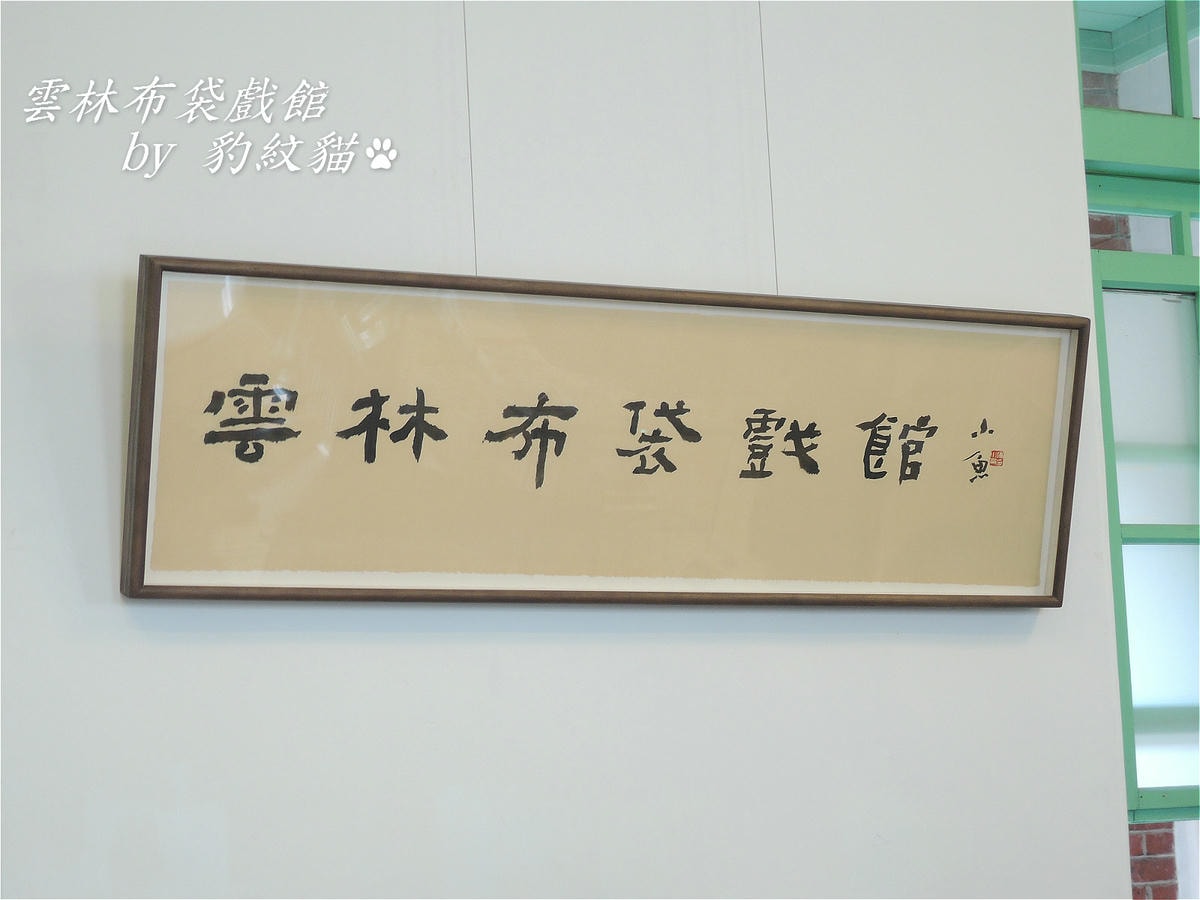 雲林布袋戲館
by 豹紋貓
雲林布袋戲館
小魚